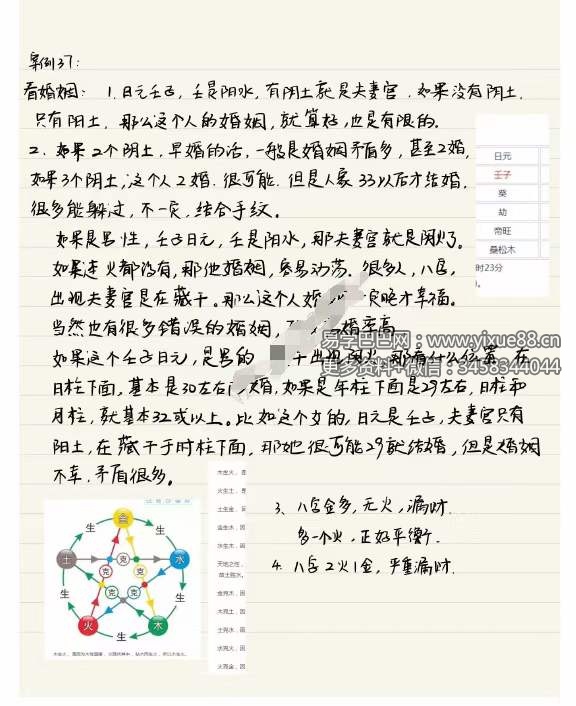 案例37:
看婚姻: 1.日元壬子,壬是阳水,有阴土就是夫妻宫.如果没有阴土.
只有阳土.那么这个人的婚姻,就算好,也是有限的.
2.如果2个阴土,早婚的话,一般是婚姻矛盾多,甚至2婚,
如果3个阴土,这个人2婚.很可能.但是人家33以后才结婚,
很多能躲过,不一定,结合手纹。
如果是男性,壬子日元,壬是阳水,那夫妻宫就是阴火了。
如果连火都没有,那他婚姻,容易动荡.很多人,八字,
出现夫妻宫是在藏干。那么这个人婚 晚才幸福.
当然也有很多错误的婚姻, 婚率高
如果这个壬子日元,是男的 干出现阴火 那有什么位置.在
日柱下面,基本是30左右 婚,如果是年柱下面是29左右,日柱和
月柱,就基本32或以上。比如这个女的,日元是壬子,夫妻宫只有
阳土,在藏干于时柱下面,那她很可能29就结婚,但是婚姻
不幸.矛盾很多。
3、八字金多,无火,漏财.
多一个火,正好平衡.
4.八字2火1金,严重漏财.
日元
壬子
癸
劫
帝旺
桑松木
时23分
易学巴巴网:www.yixue88.cn
更多资料+微信:3458344044
金
水
木
火
土
生
生
生
生
生
克
克
克
克
克
木生火,
火生土,
土生金,因
金生水,因
水生木,因
天地之性,
故土胜水。
金克木,因
木克土,因
土克水,因
水克火,因
火克金,因